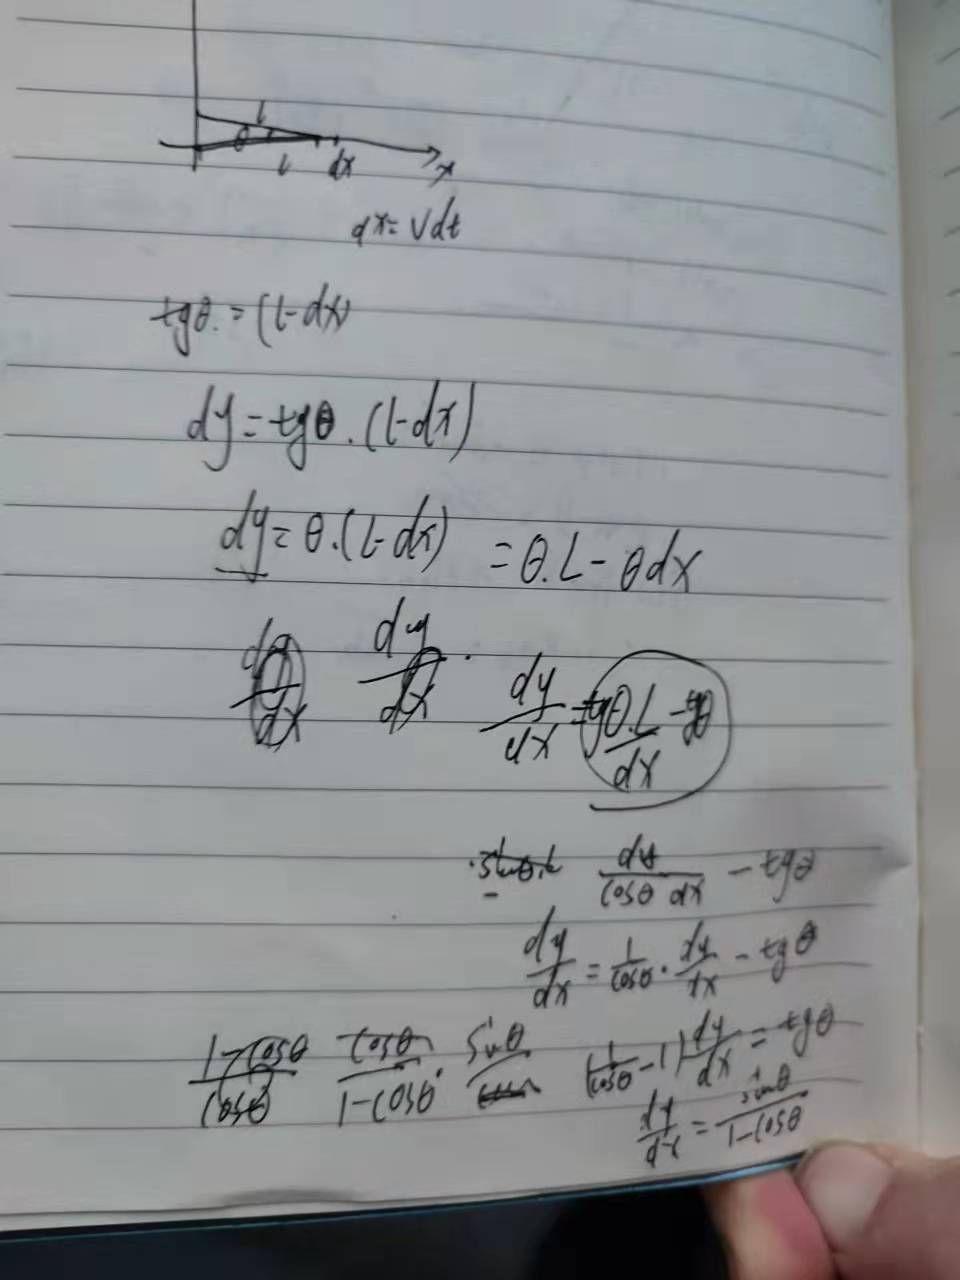 l
θ
l dx x
dx = Vdt
tgθ. = (l-dx)
dy = tgθ . (l-dx)
dy = θ.(l-dx) = θ.L - θdx
dy/dx dy/dx . dy/dx = tgθ.L/dx - tgθ
.sinθ.L dy/cosθ dx - tgθ
dy/dx = 1/cosθ . dy/dx - tgθ
1-cosθ/cosθ cosθ/1-cosθ . sinθ (1/cosθ - 1) dy/dx = tgθ
dy/dx = sinθ/1-cosθ